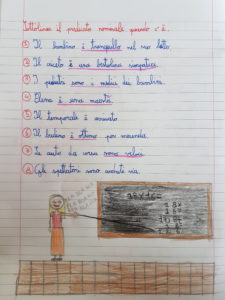 Sottolinea il predicato nominale quando c'è.
① Il bambino è tranquillo nel suo letto.
② Il criceto è una bestiolina simpatica.
③ I pediatri sono i medici dei bambini.
④ Elena è una maestra.
⑤ Il temporale è arrivato.
⑥ Il budino è ottimo per merenda.
⑦ Le auto da corsa sono veloci.
⑧ Gli spettatori sono andati via.